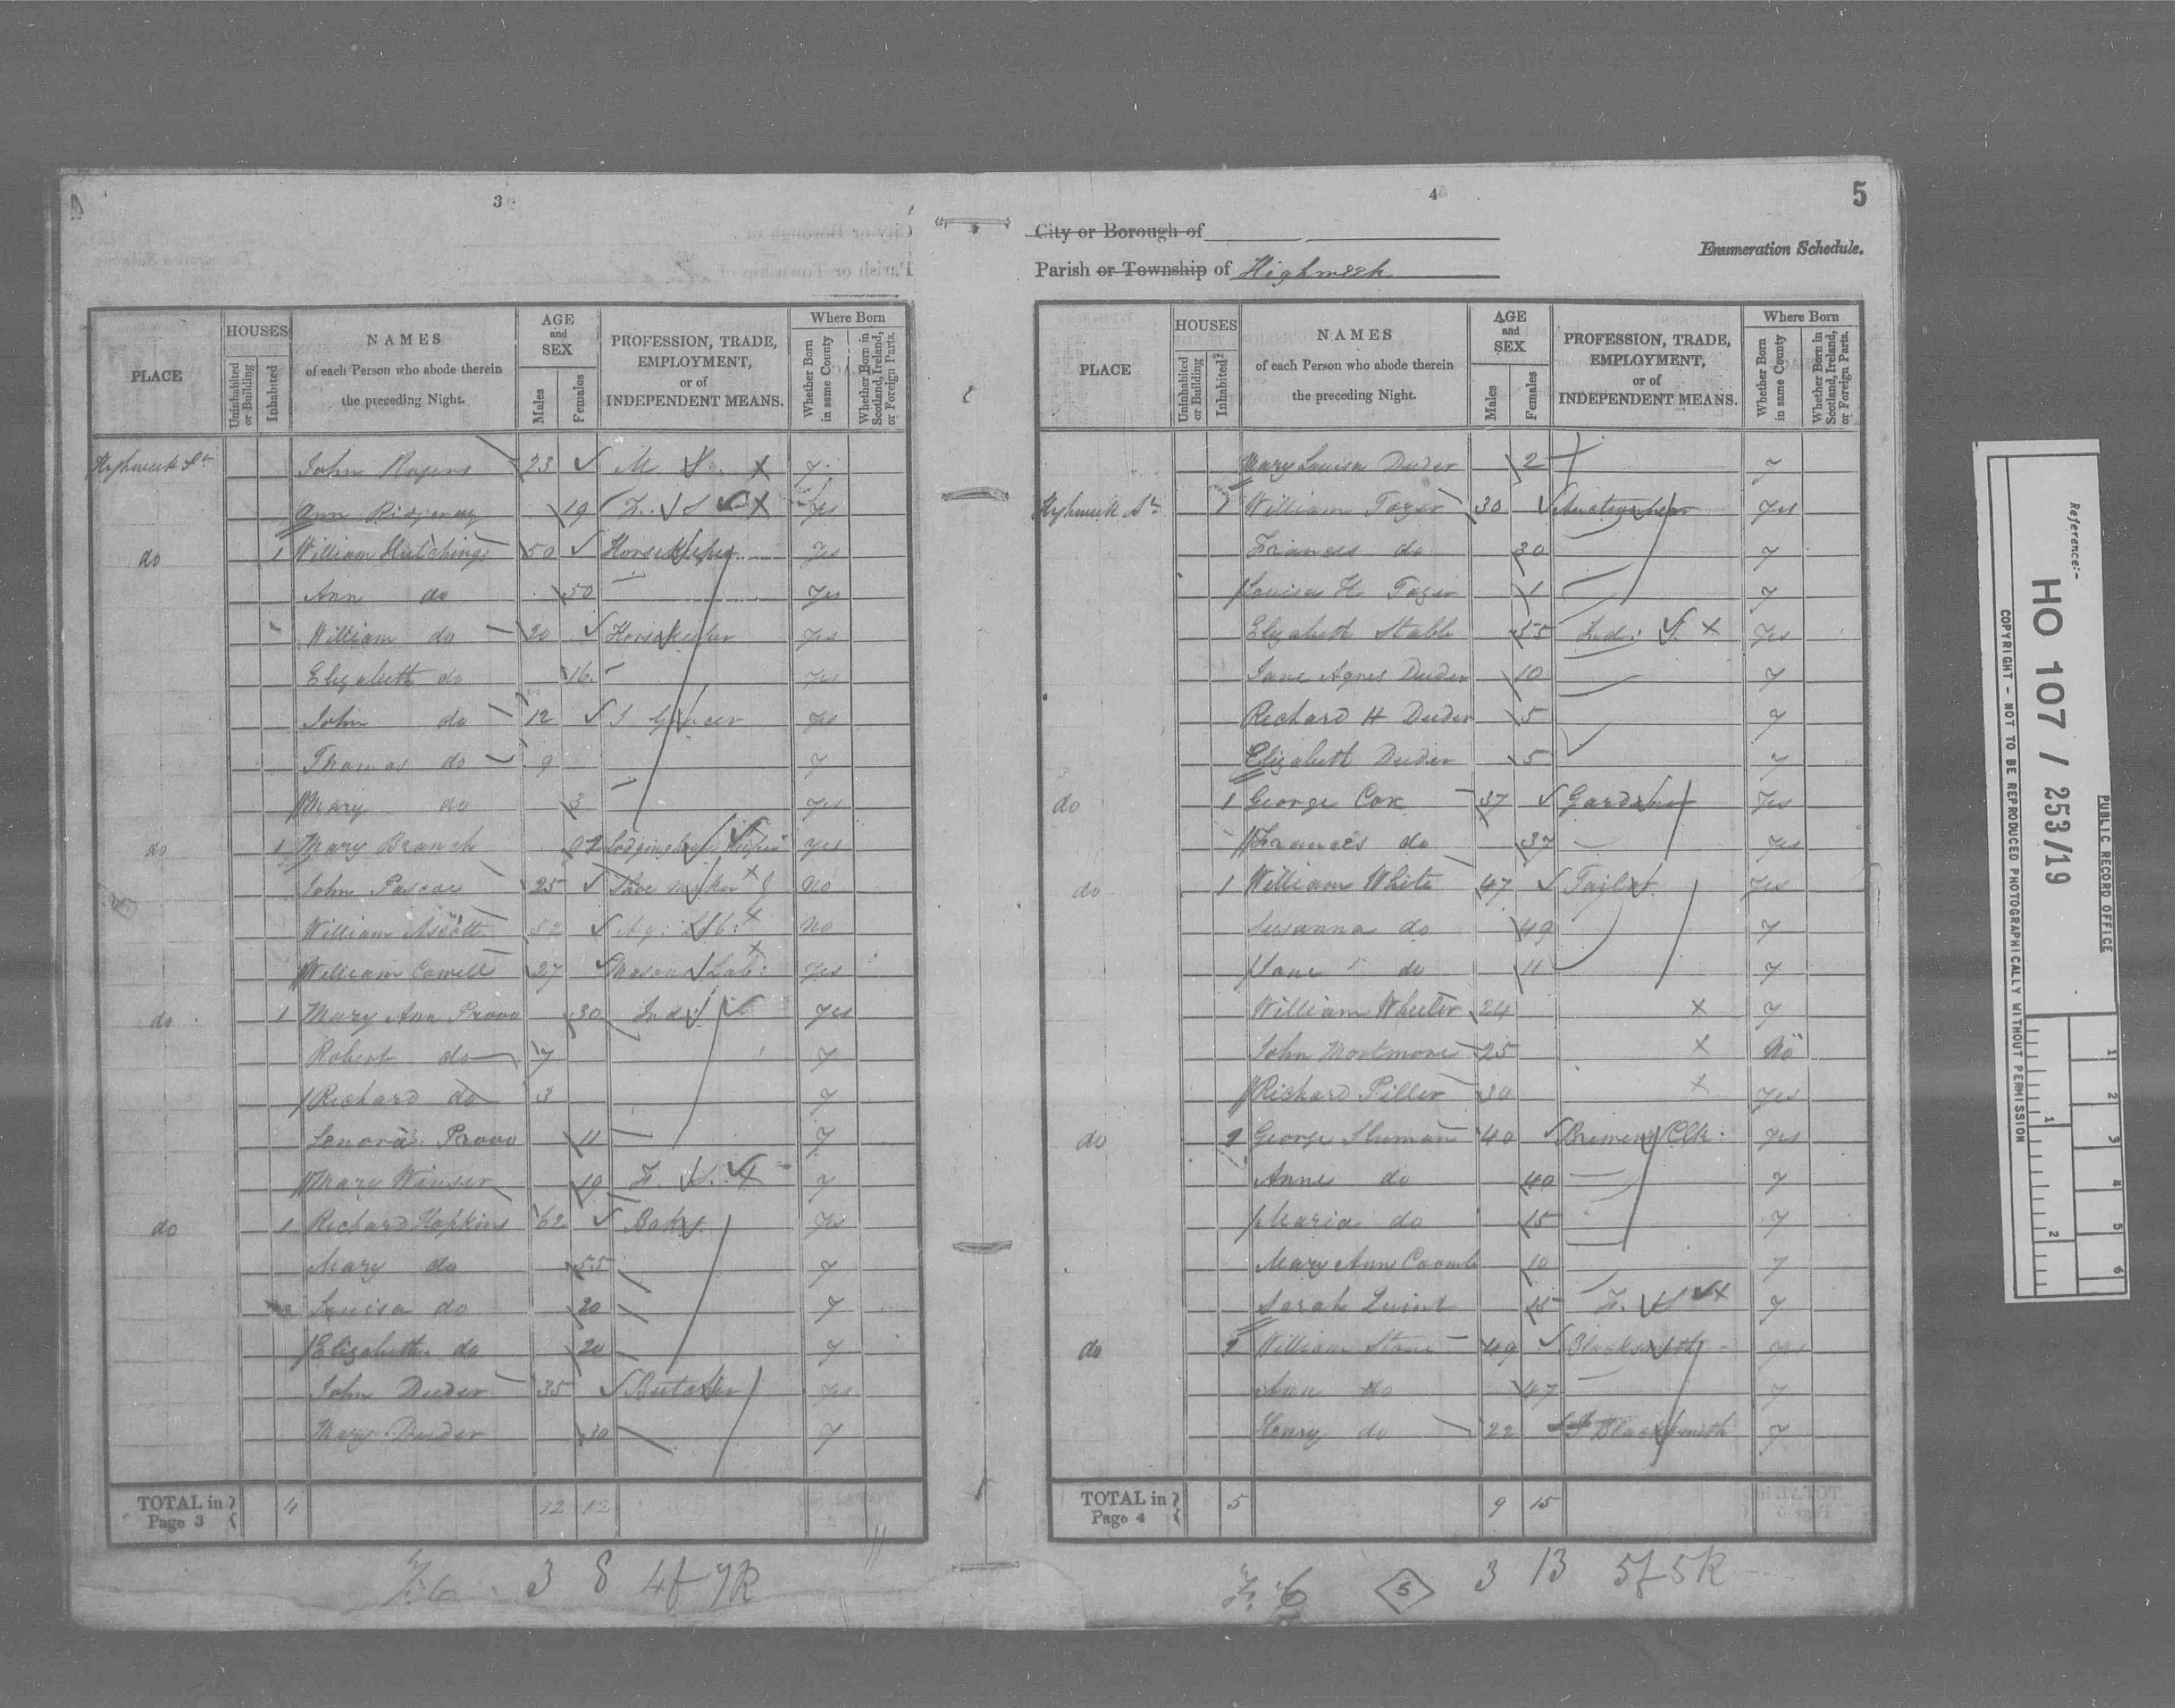 3
HOUSES
AGE
and
SEX
Where Born
PLACE
Uninhabited or Building
Inhabited
NAMES
of each Person who abode therein
the preceding Night.
Males
Females
PROFESSION, TRADE,
EMPLOYMENT,
or of
INDEPENDENT MEANS.
Whether Born in same County
Whether Born in Scotland, Ireland, or Foreign Parts.
Highweek St John Rogers 23 M S. X y
Ann Ridgeway 19 F. S X Yes
do 1 William Hutchings 50 Horsekeeper Yes
Ann do 50 Yes
William do 20 Horsekeeper Yes
Elizabeth do 16 Yes
John do 12 Yes
Thomas do 9 y
Mary do 3 Yes
do 1 Mary Branch Yes
John Pascoe 25 Shoe maker J No
William Ascott 52 Ag: Lab: No
William Cowell 27 Mason Lab: Yes
do 1 Mary Ann 30 Ind: Yes
Robert do 7 y
Richard do 3 y
Lenora 11 y
Mary Winser 19 F. S. y
do 1 Richard Hopkins 62 Baker Yes
Mary do 55 y
Louisa do 20 y
Elizabeth do 20 y
John Duder 35 Butcher Yes
Mary Duder 30 y
TOTAL in Page 3 4 12 12
3 8 4f 9R
4
5
City or Borough of
Enumeration Schedule.
Parish or Township of Highweek
HOUSES
AGE
and
SEX
Where Born
PLACE
Uninhabited or Building
Inhabited
NAMES
of each Person who abode therein
the preceding Night.
Males
Females
PROFESSION, TRADE,
EMPLOYMENT,
or of
INDEPENDENT MEANS.
Whether Born in same County
Whether Born in Scotland, Ireland, or Foreign Parts.
Mary Louisa Duder 2 y
Highweek St 1 William Tozer 30 Auctioneer Yes
Frances do 30 y
Louisa H. Tozer 1 y
Elizabeth Stabb 55 Ind: X Yes
Jane Agnes Duder 10 y
Richard H Duder 5 y
Elizabeth Duder 5 y
do 1 George Cox 37 Gardener Yes
Frances do 37 Yes
do 1 William White 47 Tailor Yes
Susanna do 49 y
Jane do 11 y
William Wheeler 24 X y
John Mortmore 25 X No
Richard Piller 30 X Yes
do 1 George Sluman 40 Brewery Clk: Yes
Anne do 40 y
Maria do 15 y
Mary Ann Coomb 10 y
Sarah Quint 15 F. S X y
do 1 William Stone 49 Blacksmith Yes
Ann do 47 y
Henry do 22 J Blacksmith y
TOTAL in Page 4 5 9 15
5
3 13 5f 5R
Reference:-
HO 107 / 253/19
PUBLIC RECORD OFFICE
COPYRIGHT - NOT TO BE REPRODUCED PHOTOGRAPHICALLY WITHOUT PERMISSION
1 2 3 4 5 6
1 2